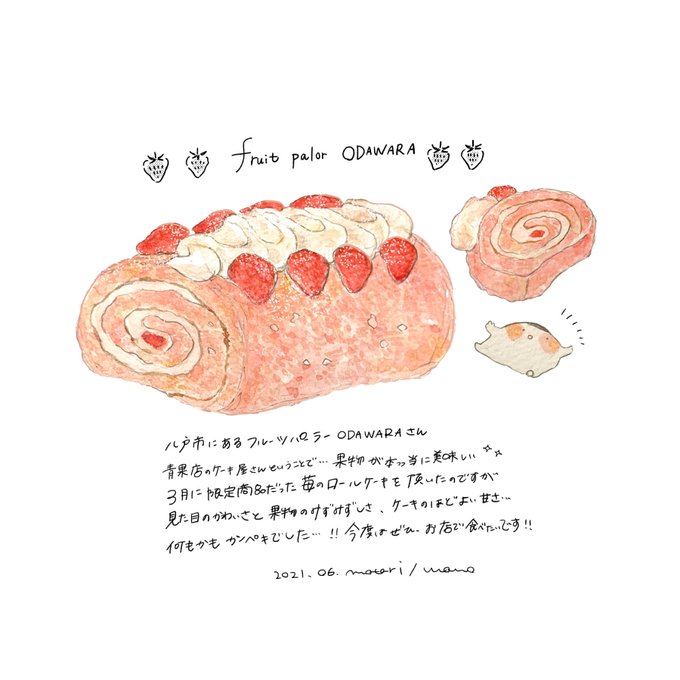 fruit palor ODAWARA
八戸市にあるフルーツパーラー ODAWARAさん
青果店のケーキ屋さんということで… 果物が本っ当に美味しい
3月に限定商品だった苺のロールケーキを頂いたのですが
見た目のかわいさと果物のみずみずしさ、ケーキのほどよい甘さ…
何もかもカンペキでした…!! 今度はぜひ、お店で食べたいです!!
2021.06.